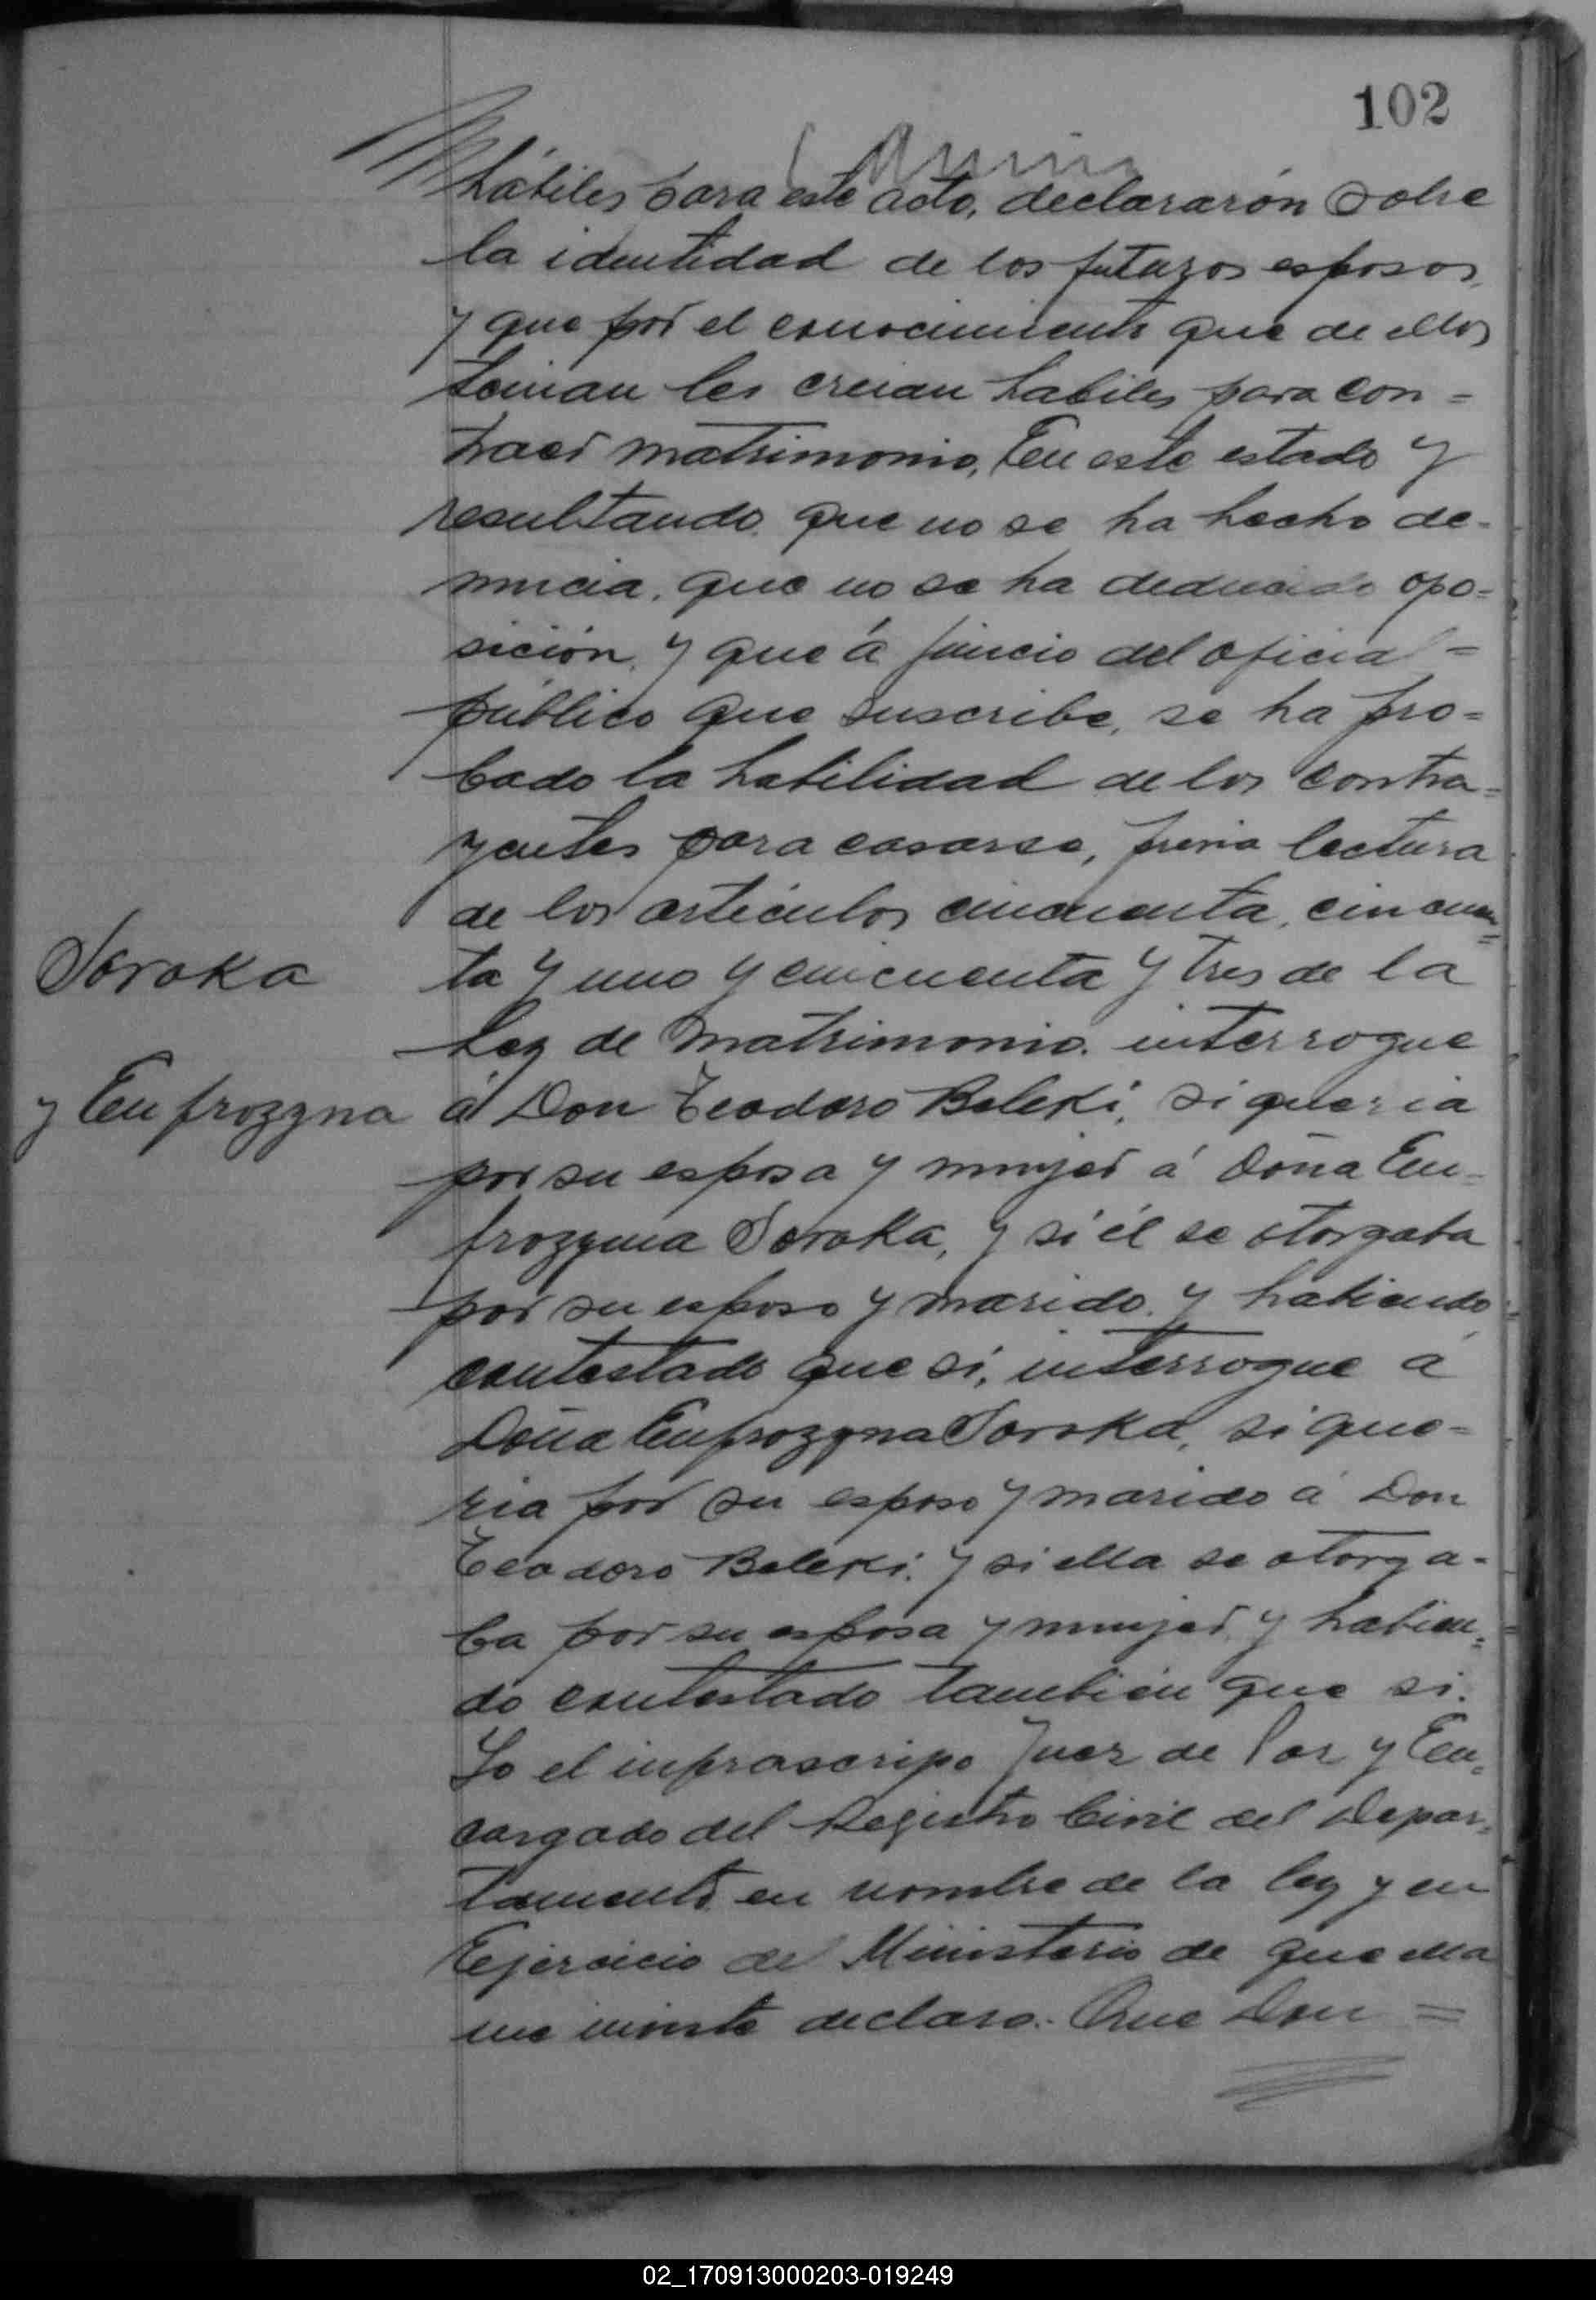 102
hábiles para este acto, declararón sobre
la identidad de los futuros esposos,
y que por el conocimiento que de ellos
tenian les creian habiles para con=
traer matrimonio, En este estado y
resultando que no se ha hecho de-
nuncia, que no se ha deducido opo=
sición, y que á juicio del oficial=
público que suscribe, se ha pro=
bado la habilidad de los contra=
yentes para casarse, previa lectura
de los artículos cincuenta, cincuen=
ta y uno y cincuenta y tres de la
Ley de Matrimonio. interrogue
á Don Teodoro Beleki, si queria
por su esposa y mujer á Doña Eu-
frozyna Soroka, y si él se otorgaba
por su esposo y marido. y habiendo
contestado que si, interrogue á
Doña Eufrozyna Soroka, si que=
ria por su esposo y marido á Don
Teodoro Beleki. y si ella se otorga-
ba por su esposa y mujer, y habien=
do contestado tambien que si.
Yo el infrascripo Juez de Paz y En=
cargado del Registro Civil del Depar=
tamento en nombre de la ley y en
Ejercicio del Ministerio de que ella
me inviste declaro: Que Don =
Soroka
y Eufrozyna
02_170913000203-019249